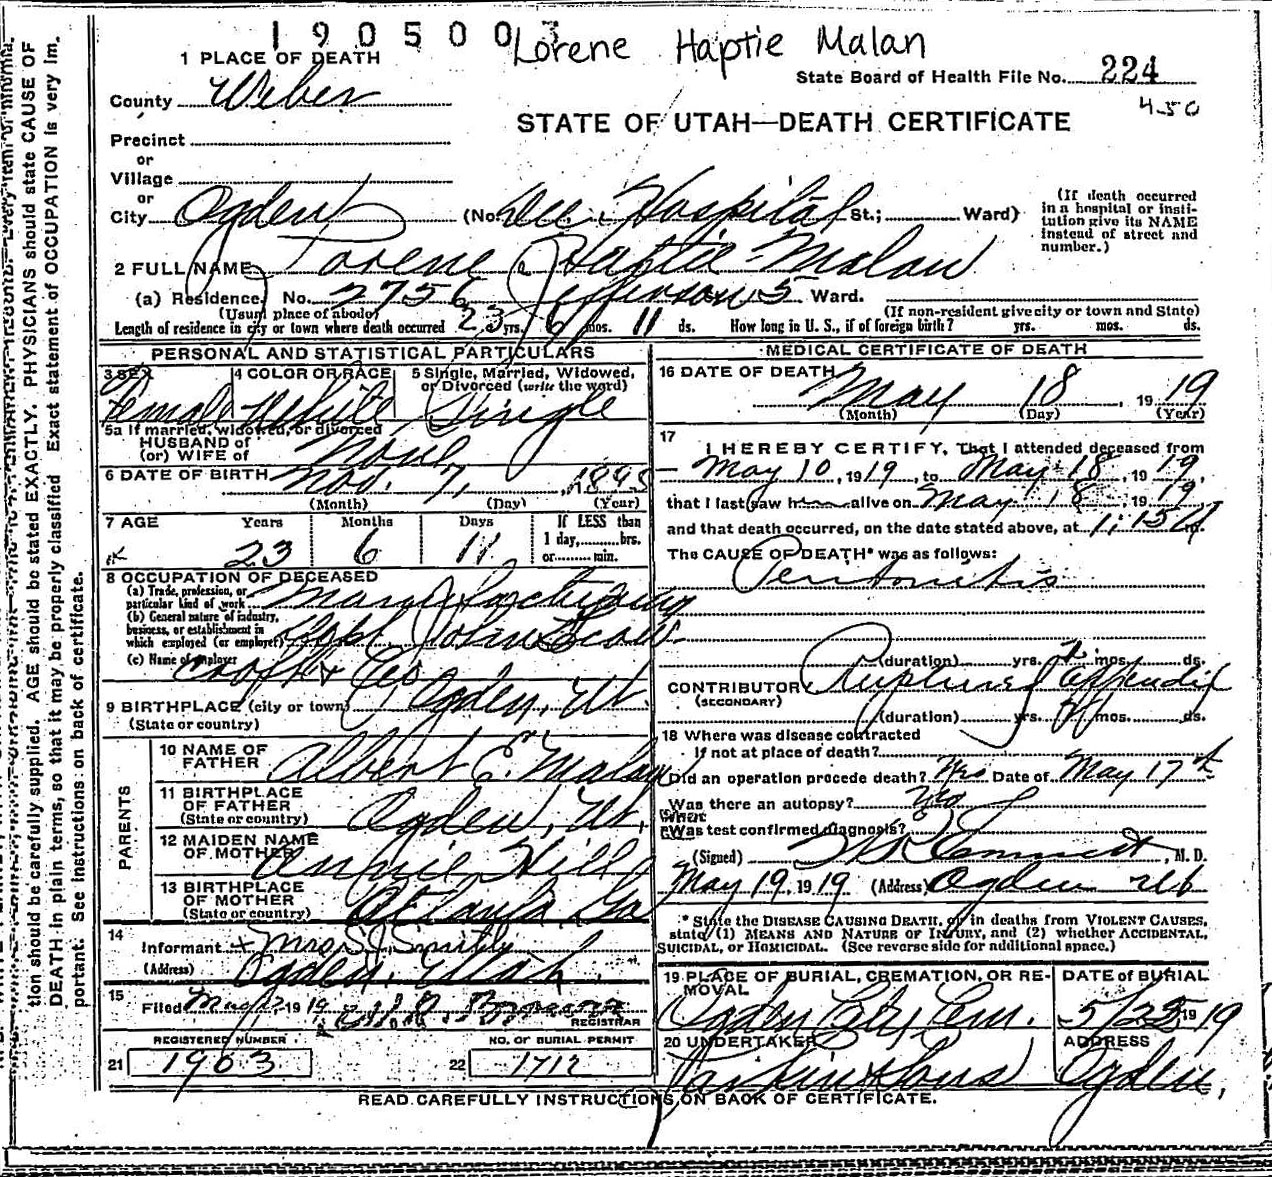 1905003
Lorene Haptie Malan
1 PLACE OF DEATH
State Board of Health File No. 224
County Weber
450
STATE OF UTAH—DEATH CERTIFICATE
Precinct
or
Village
or
City Ogden (No. Dee Hospital St.; Ward)
(If death occurred in a hospital or institution give its NAME instead of street and number.)
2 FULL NAME Lorene Haptie Malan
(a) Residence, No. 2756 Jefferson S. Ward.
(Usual place of abode) (If non-resident give city or town and State)
Length of residence in city or town where death occurred 23 yrs. 6 mos. 11 ds. How long in U. S., if of foreign birth? yrs. mos. ds.
PERSONAL AND STATISTICAL PARTICULARS
3 SEX 4 COLOR OR RACE 5 Single, Married, Widowed, or Divorced (write the word)
Female White Single
5a If married, widowed, or divorced
HUSBAND of
(or) WIFE of None
6 DATE OF BIRTH Nov. 7, 1895
(Month) (Day) (Year)
7 AGE Years Months Days If LESS than
1 day, hrs.
23 6 11 or min.
8 OCCUPATION OF DECEASED
(a) Trade, profession, or
particular kind of work
(b) General nature of industry,
business, or establishment in
which employed (or employer)
(c) Name of employer
9 BIRTHPLACE (city or town) Ogden, Ut.
(State or country)
PARENTS
10 NAME OF FATHER Albert E. Malan
11 BIRTHPLACE OF FATHER Ogden, Ut.
(State or country)
12 MAIDEN NAME OF MOTHER Hill
13 BIRTHPLACE OF MOTHER Atlanta Ga
(State or country)
14
Informant Mrs S J
(Address) Ogden, Utah.
15
Filed 1919
REGISTRAR
REGISTERED NUMBER NO. OF BURIAL PERMIT
21 1903 22 1712
MEDICAL CERTIFICATE OF DEATH
16 DATE OF DEATH
May 18, 1919
(Month) (Day) (Year)
17
I HEREBY CERTIFY, That I attended deceased from
May 10, 1919, to May 18, 1919,
that I last saw her alive on May 18, 1919
and that death occurred, on the date stated above, at 1:15
The CAUSE OF DEATH* was as follows:
Peritonitis
(duration) yrs. mos. ds.
CONTRIBUTORY Ruptured appendix
(SECONDARY)
(duration) yrs. mos. ds.
18 Where was disease contracted
If not at place of death?
Did an operation precede death? Yes Date of May 17th
Was there an autopsy? No
What
Was test confirmed diagnosis?
(Signed) , M. D.
May 19, 1919 (Address) Ogden Ut
* State the DISEASE CAUSING DEATH, or in deaths from VIOLENT CAUSES,
state (1) MEANS AND NATURE OF INJURY, and (2) whether ACCIDENTAL,
SUICIDAL, or HOMICIDAL. (See reverse side for additional space.)
19 PLACE OF BURIAL, CREMATION, OR REMOVAL DATE of BURIAL
Ogden City Cem. 5/22 1919
20 UNDERTAKER ADDRESS
Larkin & Sons Ogden,
READ CAREFULLY INSTRUCTIONS ON BACK OF CERTIFICATE.
tion should be carefully supplied. AGE should be stated EXACTLY. PHYSICIANS should state CAUSE OF
DEATH in plain terms, so that it may be properly classified. Exact statement of OCCUPATION is very im-
portant. See instructions on back of certificate.